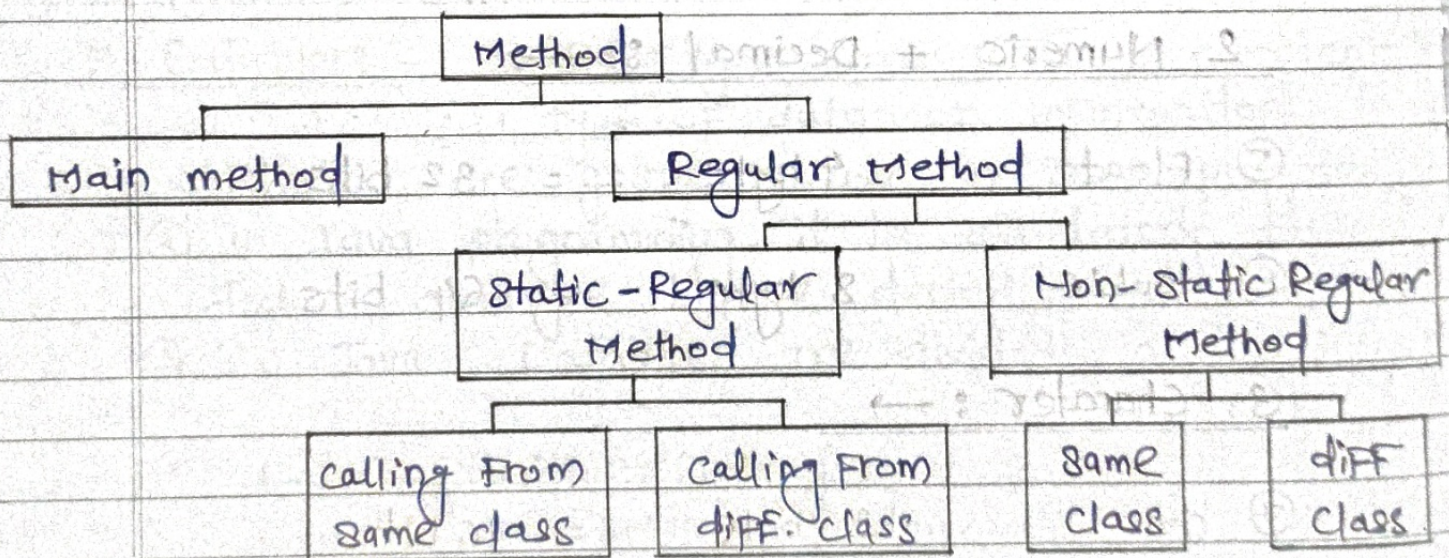 Method
Main method
Regular Method
Static-Regular
Method
Non-Static Regular
Method
Calling From
same class
Calling From
diff. class
same
class
diff
class